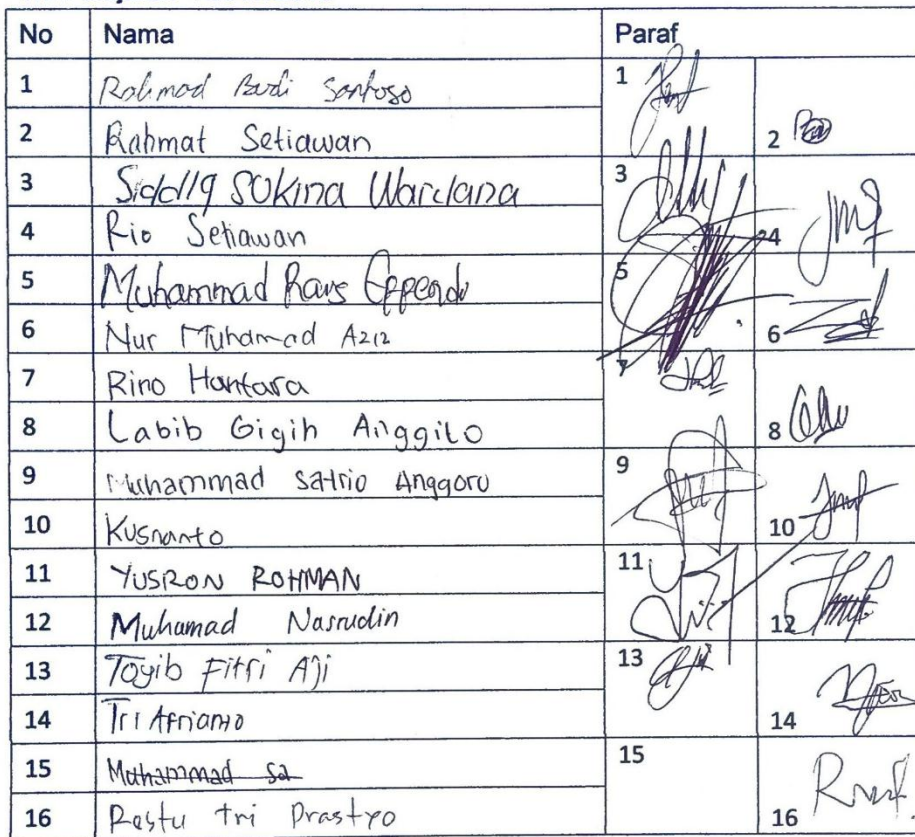 No Nama Paraf
1 Rahmad Budi Santoso 1
2 Rahmat Setiawan 2
3 Siddiq Sukma Wardana 3
4 Rio Setiawan 4
5 Muhammad Effendi 5
6 Nur Muhamad Aziz 6
7 Rino Hantara 7
8 Labib Gigih Anggito 8
9 Muhammad Satrio Anggoro 9
10 Kusnanto 10
11 YUSRON ROHMAN 11
12 Muhamad Nasrudin 12
13 Toyib Fitri Aji 13
14 Tri Afrianto 14
15 Muhammad Sa 15
16 Restu tri Prastyo 16